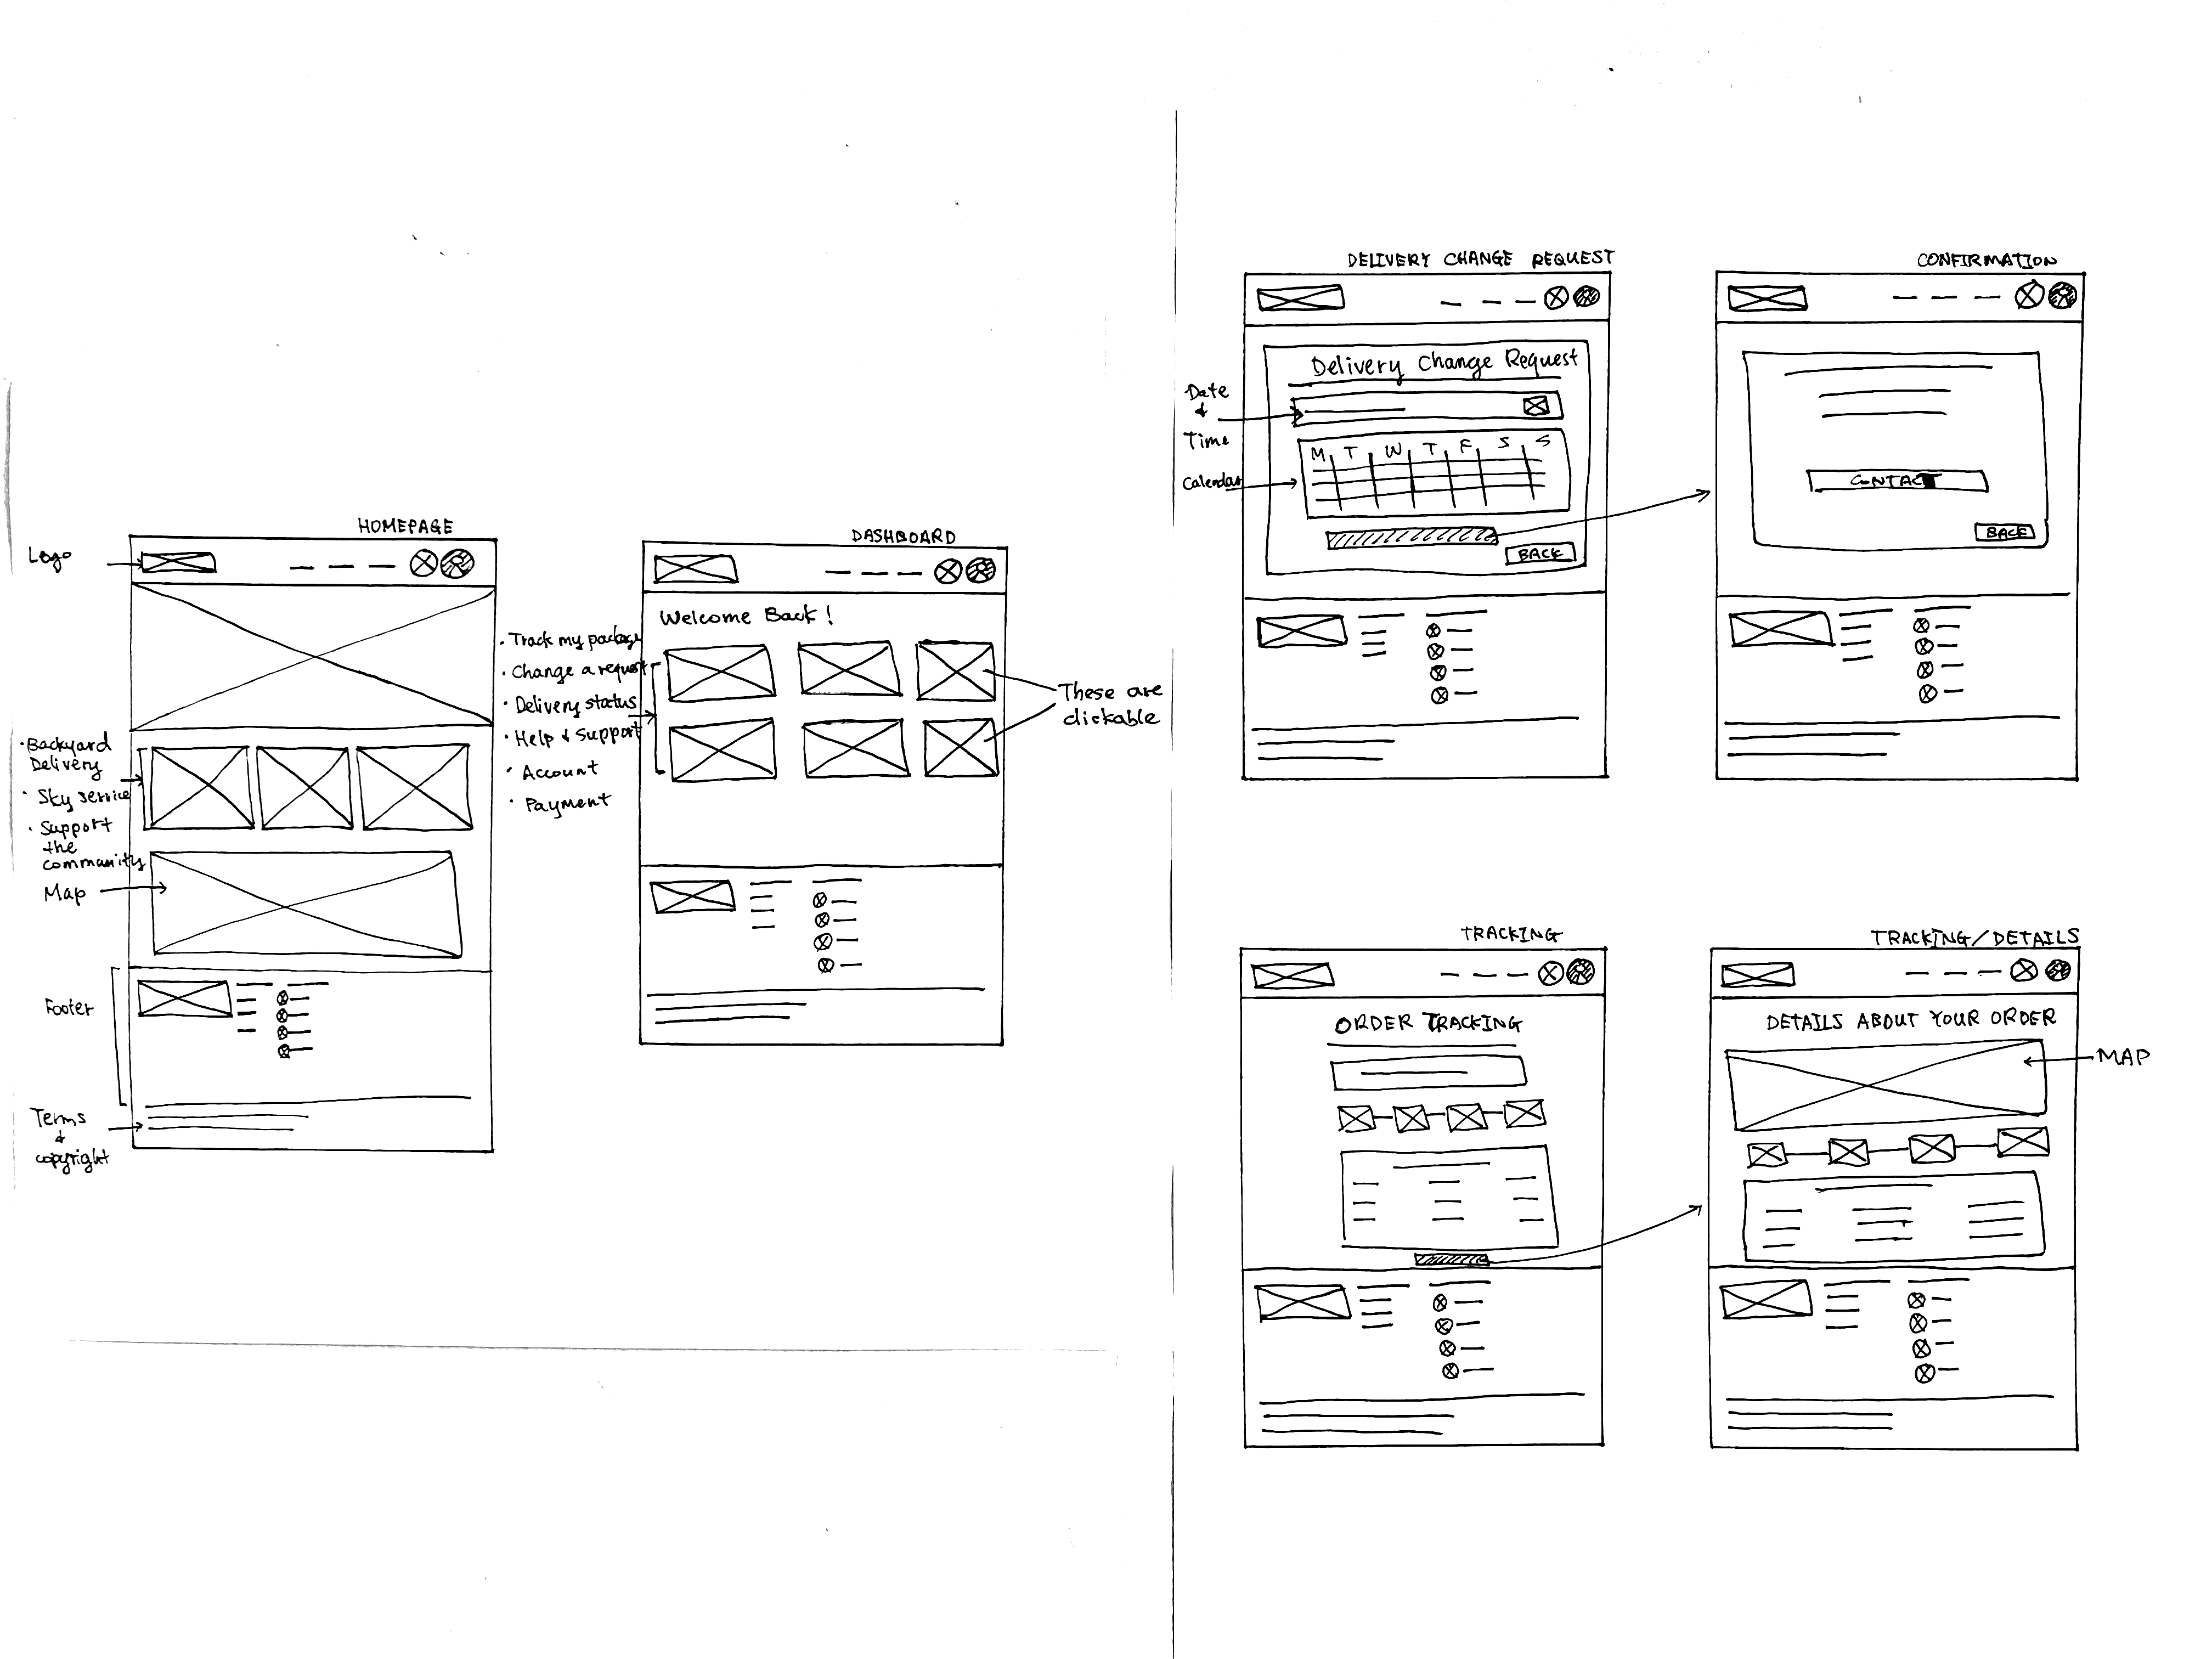 HOMEPAGE
Logo
• Backyard
Delivery
• Sky service
• Support
the
community
Map
Footer
Terms
&
copyright
DASHBOARD
Welcome Back!
• Track my package
• Change a request
• Delivery status
• Help & Support
• Account
• Payment
These are
clickable
DELIVERY CHANGE REQUEST
Delivery Change Request
Date
&
Time
Calendar
M T W T F S S
BACK
CONFIRMATION
CONTACT
BACK
TRACKING
ORDER TRACKING
TRACKING/DETAILS
DETAILS ABOUT YOUR ORDER
MAP